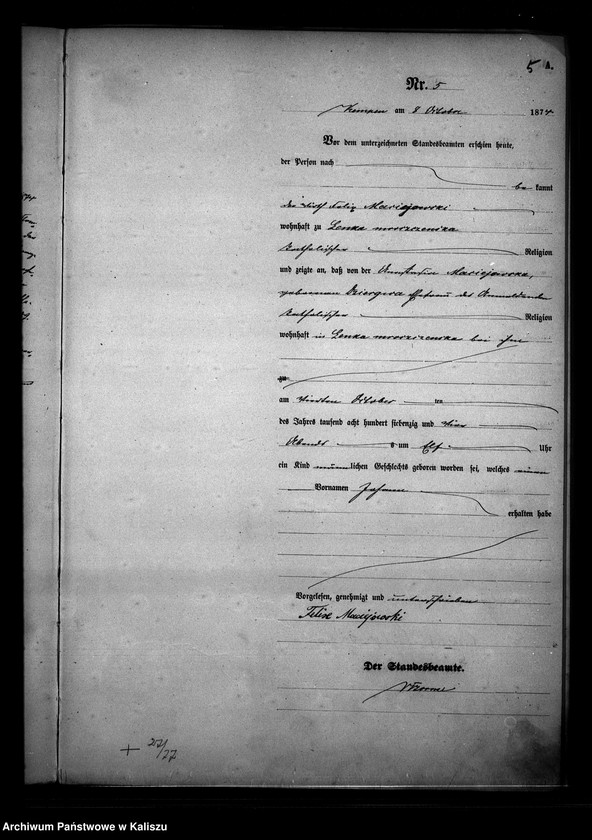 5 A.
Nr. 5
Kempen am 8 October 1874
Vor dem unterzeichneten Standesbeamten erschien heute,
der Person nach
be kannt
der Wirth Felix Maciejewski
wohnhaft zu Lenka mroczenska
katholischer Religion
und zeigte an, daß von der Maciejewska,
geborenen Dziergwa Ehefrau des Anmeldenden
katholischer Religion
wohnhaft in Lenka mroczenska bei ihm
zu
am vierten October ten
des Jahres tausend acht hundert siebenzig und vier
Abends s um Elf Uhr
ein Kind männlichen Geschlechts geboren worden sei, welches einen
Vornamen Johann
erhalten habe
Vorgelesen, genehmigt und unterschrieben
Felix Maciejewski
Der Standesbeamte.
+ 27
Archiwum Państwowe w Kaliszu